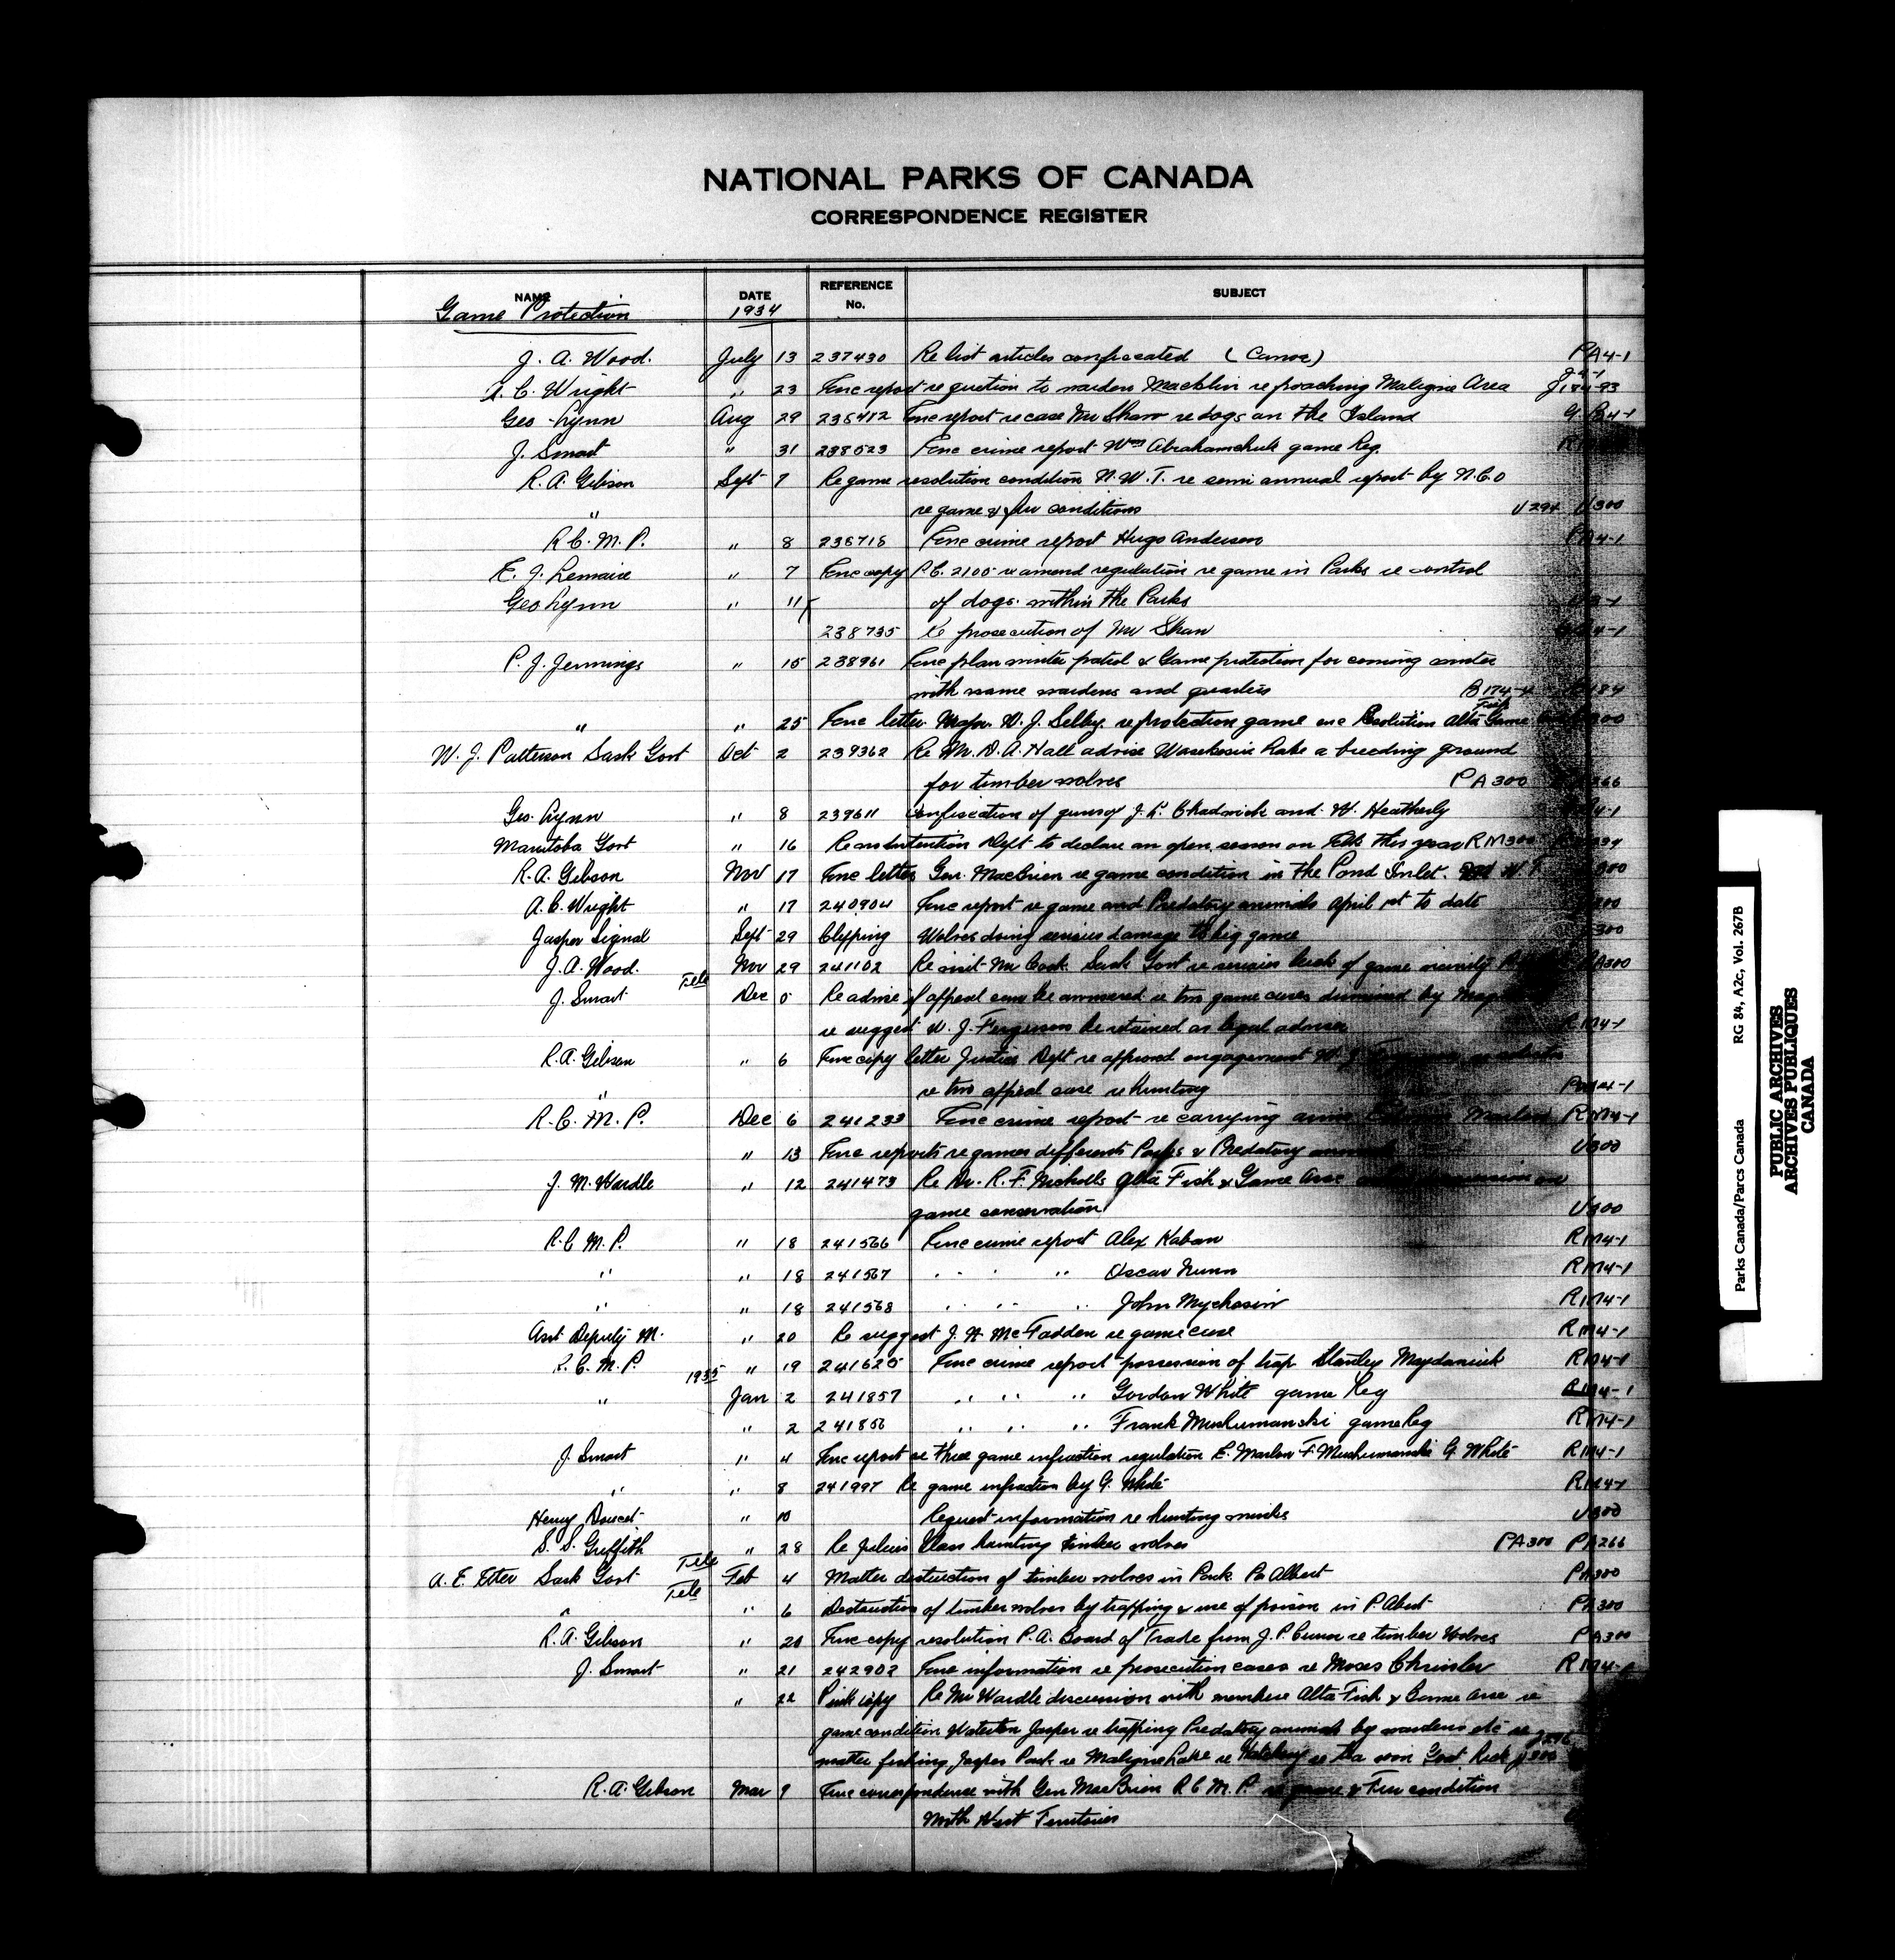 NATIONAL PARKS OF CANADA
CORRESPONDENCE REGISTER
NAME DATE REFERENCE No. SUBJECT
Game Protection 1934
J. A. Wood. July 13 237430 Re list articles confiscated (Canoe) PA4-1
A. C. Wright " 23 Enc report re question to warden Macklin re poaching Maligne Area J4-1
Geo Lynn Aug 29 Enc report re case Mr Shaw re dogs on the Island
J. Smart " 31 238523 Enc crime report Wm Abrahamchuk game Reg.
R. A. Gibson Sept 7 Re game resolution condition N. W. T. re semi annual report by N.C.O
" re game & fur conditions U294 U300
R C. M. P. " 8 238718 Enc crime report Hugo Anderson PA4-1
E. J. Lemaire " 7 Enc copy P.C. 2100 re amend regulation re game in Parks re control
Geo Lynn " 11 of dogs within the Parks
238735 Re prosecution of Mr Shaw
P. J. Jennings " 15 238961 Enc plan winter patrol & Game protection for coming winter
with name wardens and quarters
" " 25 Enc letter Major W. J. Selby re protection game enc Resolution Alta Fish Game
W. J. Patterson Sask Govt Oct 2 239362 Re Mr. D. A. Hall advise Waskesiu Lake a breeding ground
for timber wolves PA300
Geo. Lynn " 8 239611 confiscation of guns of J. L. Chadwick and W. Heatherly
Manitoba Govt " 16 Re an intention Dept to declare an open season on Elk this year RM300
R. A. Gibson Nov 17 Enc letter Gen. MacBrien re game condition in the Pond Inlet.
A. C. Wright " 17 240904 Enc report re game and Predatory animals April 1st to date
Jasper Signal Sept 29 Clipping Wolves doing serious damage to big game
J. A. Wood. Nov 29 241102 Re visit Mr Cook Sask Govt re serious lack of game vicinity
J. Smart Tele Dec 5 Re advise if appeal can be answered re two game cases dismissed by
re suggest W. J. Ferguson be retained as legal adviser RM4-1
R. A. Gibson " 6 Enc copy letter Justice Dept re approval engagement
" re two appeal case re hunting RM4-1
R. C. M. P. Dec 6 241233 Enc crime report re carrying Marlow RM4-1
" 13 Enc reports re games differents Parks & Predatory U300
J. M. Wardle " 12 241473 Re Dr. R. F. Nicholls Alta Fish & Game Asse
game conservation U300
R. C M. P. " 18 241566 Enc crime report Alex Kaban RM4-1
" " 18 241567 " " " Oscar Nunn RM4-1
" " 18 241568 " " " John Mychasiw RM4-1
Asst Deputy M. " 20 Re suggest J. A McFadden re game case RM4-1
R. C. M. P. " 19 241625 Enc crime report possession of trap Stanley Maydaniuk RM4-1
1935
" Jan 2 241857 " " " Gordon White game Reg RM4-1
" 2 241856 " " " Frank Mushumanski game Reg RM4-1
J. Smart " 4 Enc report re three game infraction regulation E. Marlow F. Mushumanski G. White RM4-1
" " 8 241997 Re game infraction by G. White RM4-1
Henry Doucet " 10 Request information re hunting minks U300
S. S. Griffith " 28 Re Julius hunting timber wolves PA300 PA266
A. E. Etter Sask Govt Tele Feb 4 Matter destruction of timber wolves in Park Pr Albert PA300
" Tele " 6 Destruction of timber wolves by trapping & use of poison in P. Abert PA300
R. A. Gibson " 20 Enc copy resolution P. A. Board of Trade from J. P. Curror re timber Wolves PA300
J. Smart " 21 242902 Enc information re prosecution cases re Moses
" 22 Pink copy Re Mr Wardle discussion with members Alta Fish & Game Asse re
game condition Waterton Jasper re trapping Predatory animals by wardens etc re
matter fishing Jasper Park re Maligne Lake re Hatchery
R. A. Gibson Mar 9 Enc correspondence with Gen MacBrien R C M. P. re game & Fur condition
North West Territories
Parks Canada/Parcs Canada RG 84, A2c, Vol. 267B
PUBLIC ARCHIVES
ARCHIVES PUBLIQUES
CANADA